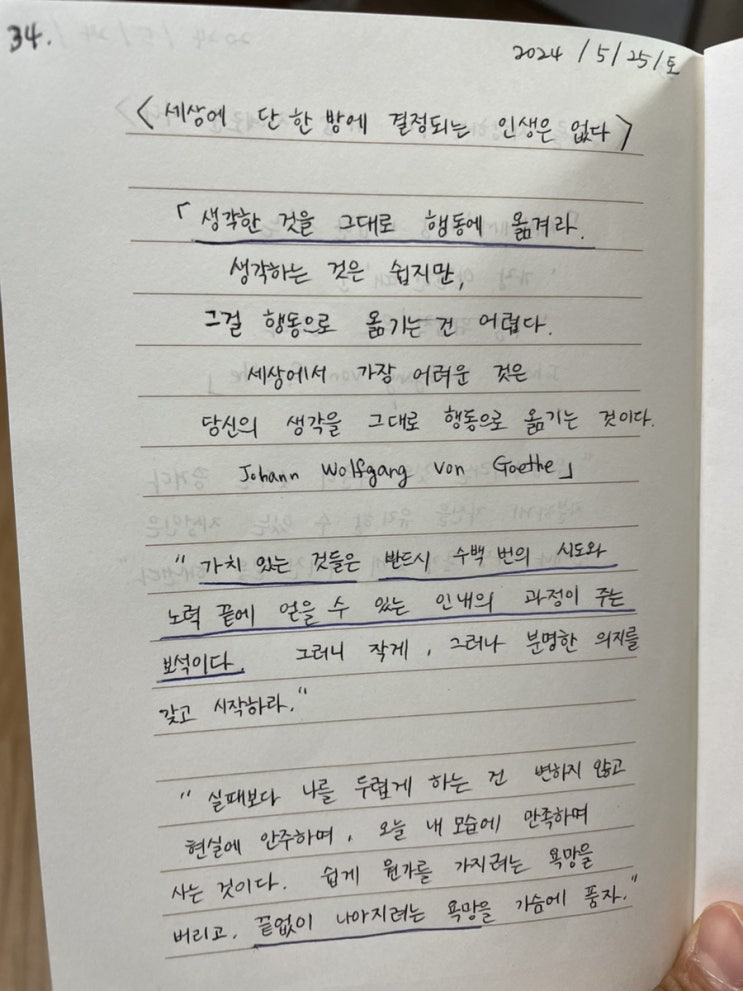 34.
2024 / 5 / 25 / 토
< 세상에 단 한 방에 결정되는 인생은 없다 >
「 생각한 것을 그대로 행동에 옮겨라.
생각하는 것은 쉽지만,
그걸 행동으로 옮기는 건 어렵다.
세상에서 가장 어려운 것은
당신의 생각을 그대로 행동으로 옮기는 것이다.
Johann Wolfgang von Goethe」
" 가치 있는 것들은 반드시 수백 번의 시도와
노력 끝에 얻을 수 있는 인내의 과정이 주는
보석이다. 그러니 작게, 그러나 분명한 의지를
갖고 시작하라."
" 실패보다 나를 두렵게 하는 건 변하지 않고
현실에 안주하며, 오늘 내 모습에 만족하며
사는 것이다. 쉽게 뭔가를 가지려는 욕망을
버리고, 끝없이 나아지려는 욕망을 가슴에 품자."